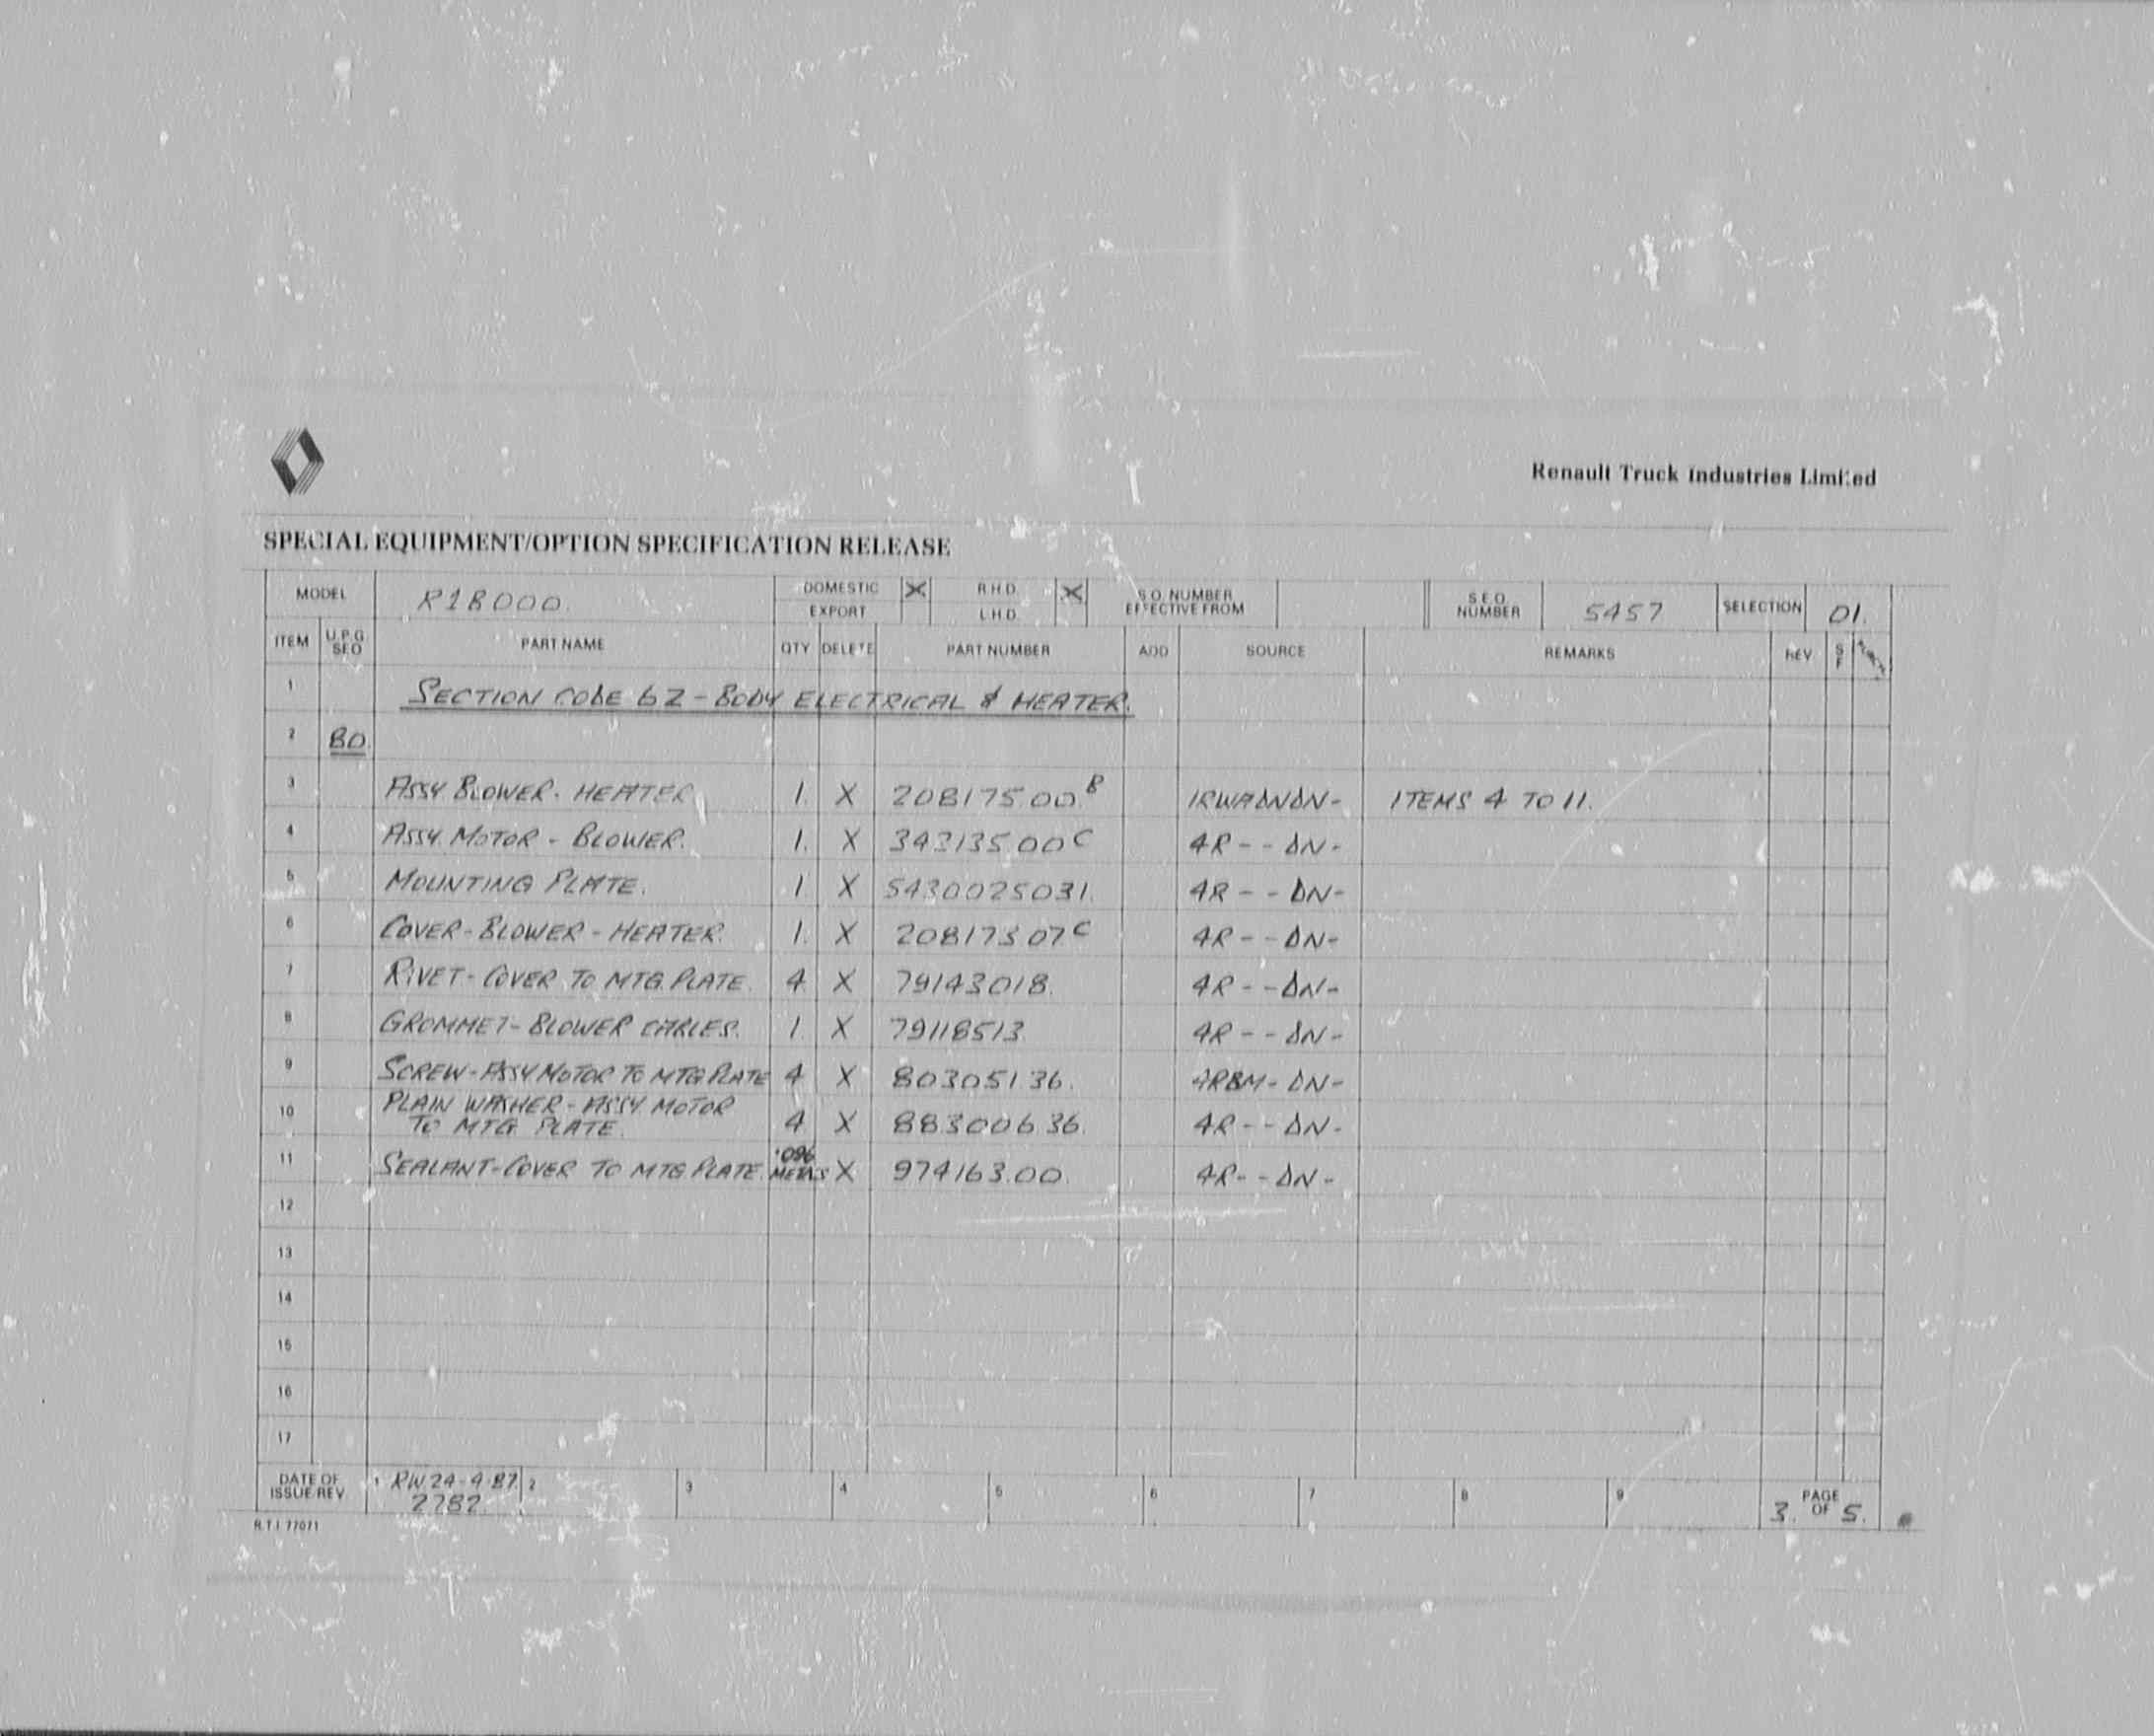 Renault Truck Industries Limited
SPECIAL EQUIPMENT/OPTION SPECIFICATION RELEASE
MODEL R18000. DOMESTIC X R.H.D. X S.O. NUMBER S.E.O. 5457 SELECTION 01.
EXPORT L.H.D. EFFECTIVE FROM NUMBER
ITEM U.P.G. SEO PART NAME QTY DELETE PART NUMBER ADD SOURCE REMARKS REV S F
1 SECTION CODE 62 - BODY ELECTRICAL & HEATER.
2 80.
3 ASSY BLOWER - HEATER 1. X 208175.00 B 1RWADNDN- ITEMS 4 TO 11.
4 ASSY. MOTOR - BLOWER. 1. X 342135.00 C 4R--DN-
5 MOUNTING PLATE. 1 X 5430025031. 4R--DN-
6 COVER-BLOWER-HEATER. 1. X 208173 07 C 4R--DN-
7 RIVET-COVER TO MTG. PLATE. 4 X 79143018. 4R--DN-
8 GROMMET-BLOWER CABLES. 1. X 79118513 4R--DN-
9 SCREW-ASSY MOTOR TO MTG PLATE 4 X 80305136. 4RBM-DN-
10 PLAIN WASHER-ASSY. MOTOR
TO MTG. PLATE. 4 X 88300636. 4R--DN-
11 SEALANT-COVER TO MTG. PLATE. .096 X 974163.00. 4R--DN-
12
13
14
15
16
17
DATE OF ISSUE/REV. 1 RW 24-9-87 2 3 4 5 6 7 8 9 PAGE
2782. 3. OF 5.
R.T.I. 77071